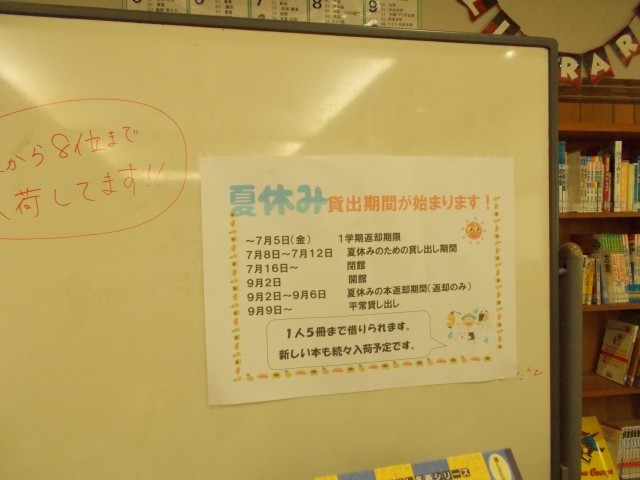 から8位まで
荷してます!!
夏休み貸出期間が始まります!
～7月5日(金) 1学期返却期限
7月8日～7月12日 夏休みのための貸し出し期間
7月16日～ 閉館
9月2日 開館
9月2日～9月6日 夏休みの本返却期間(返却のみ)
9月9日～ 平常貸し出し
1人5冊まで借りられます。
新しい本も続々入荷予定です。
6
7
8
9
RAR
シリーズ